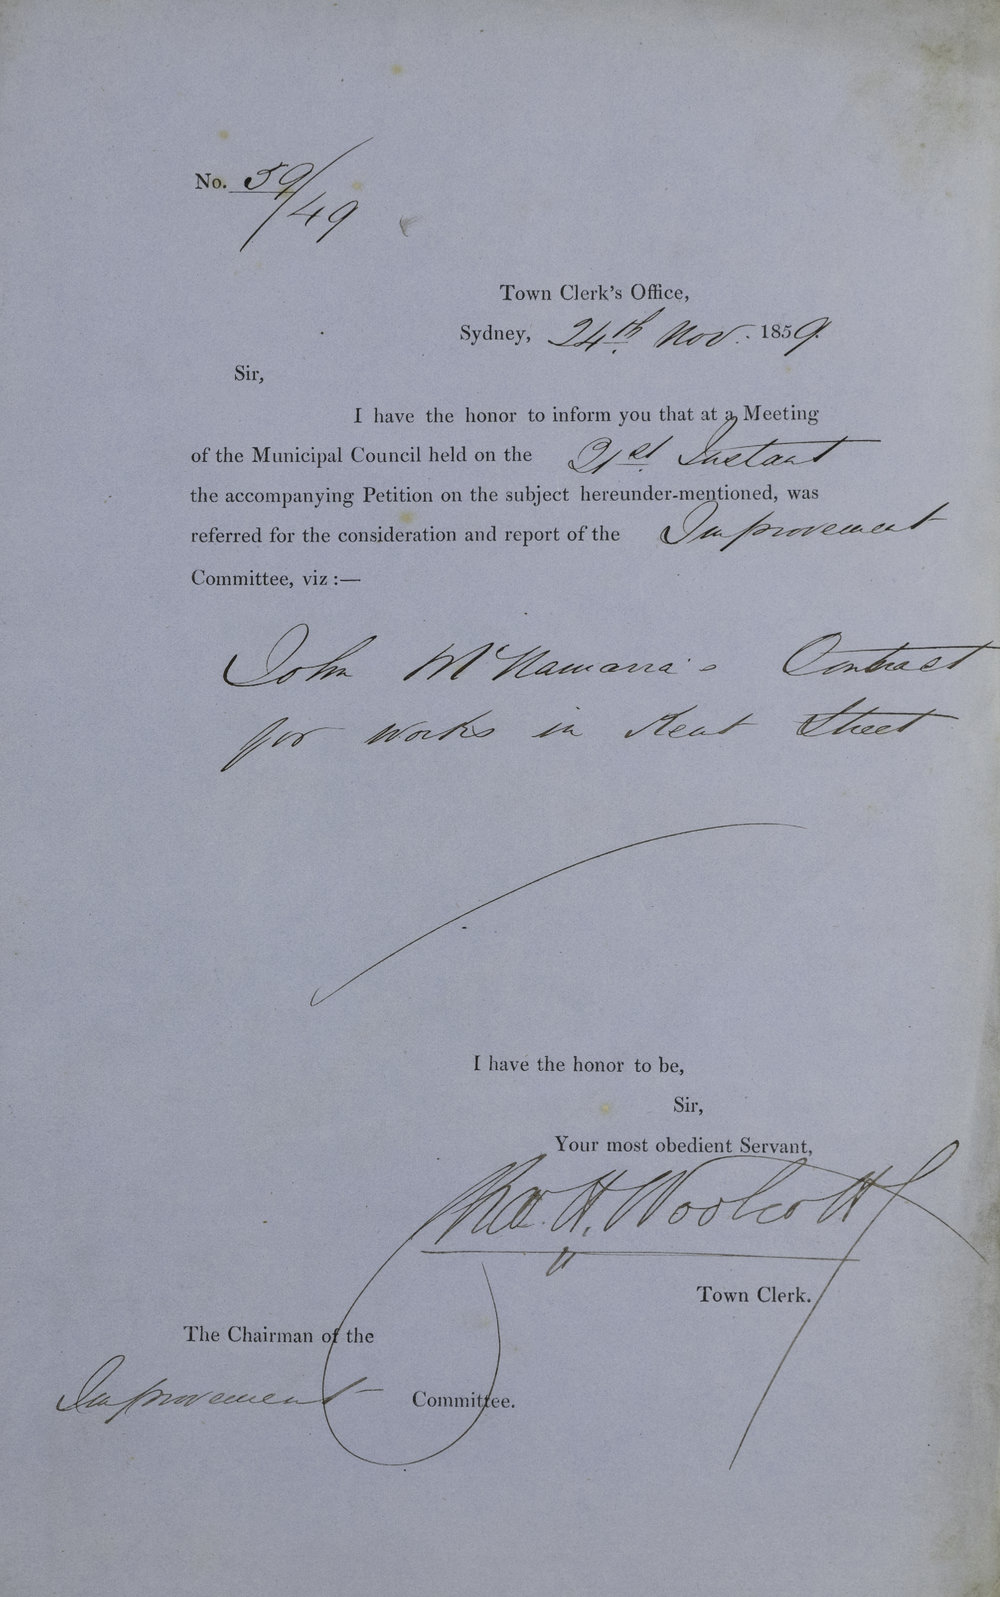 No. 59/49
Town Clerk's Office,
Sydney, 24th Nov. 1859.
Sir,
I have the honor to inform you that at a Meeting
of the Municipal Council held on the 21st Instant
the accompanying Petition on the subject hereunder-mentioned, was
referred for the consideration and report of the Improvement
Committee, viz :—
John McNamarra's Contract
for works in Kent Street
I have the honor to be,
Sir,
Your most obedient Servant,
Chas. H. Woolcott
Town Clerk.
The Chairman of the
Improvement Committee.